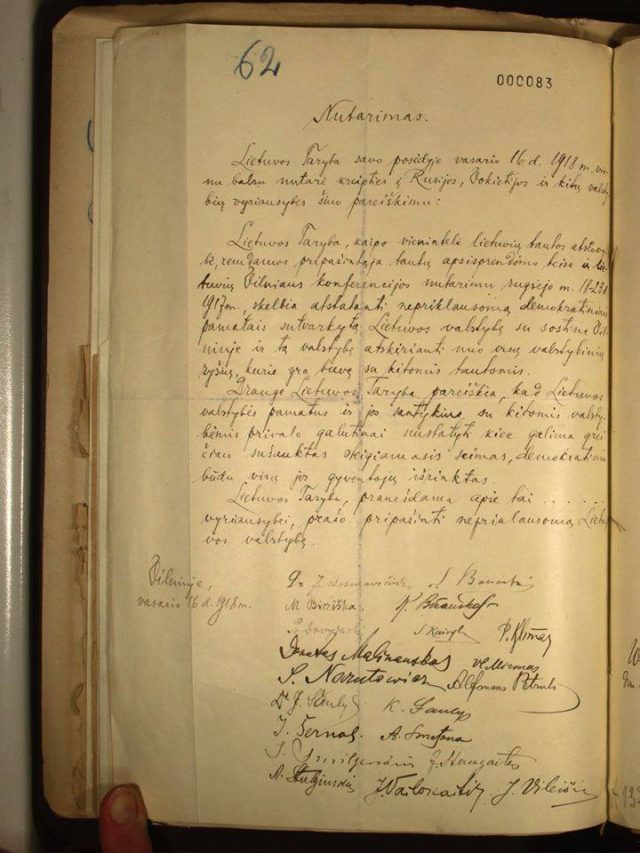 62
000083
Nutarimas.
Lietuvos Taryba savo posėdyje vasario 16 d. 1918 m. vie-
nu balsu nutarė kreiptis į Rusijos, Vokietijos ir kitų valsty-
bių vyriausybes šiuo pareiškimu:
Lietuvos Taryba, kaipo vienintelė lietuvių tautos atstovy-
bė, remdamos pripažintąja tautų apsisprendimo teise ir lie-
tuvių Vilniaus konferencijos nutarimu rugsėjo m. 18-23 d.
1917 m., skelbia atstatanti nepriklausomą demokratiniais
pamatais sutvarkytą Lietuvos valstybę su sostine Vil-
niuje ir tą valstybę atskirianti nuo visų valstybinių
ryšių, kurie yra buvę su kitomis tautomis.
Drauge Lietuvos Taryba pareiškia, kad Lietuvos
valstybės pamatus ir jos santykius su kitomis valsty-
bėmis privalo galutinai nustatyti kiek galima grei-
čiau sušauktas steigiamasis seimas, demokratiniu
būdu visų jos gyventojų išrinktas.
Lietuvos Taryba, pranešdama apie tai . . . . . .
vyriausybei, prašo pripažinti nepriklausomą Lietu-
vos valstybę.
Vilniuje,
vasario 16 d. 1918 m.
Dr J. Basanavičius S. Banaitis
M. Biržiška K. Bizauskas
S. Kairys P. Klimas
Donatas Malinauskas Vl. Mironas
S. Narutowicz Alfonsas Petrulis
Dr J. Šaulys K. Šaulys
J. Šernas A. Smetona
J. Smilgevičius J. Staugaitis
A. Stulginskis J. Vailokaitis J. Vileišis